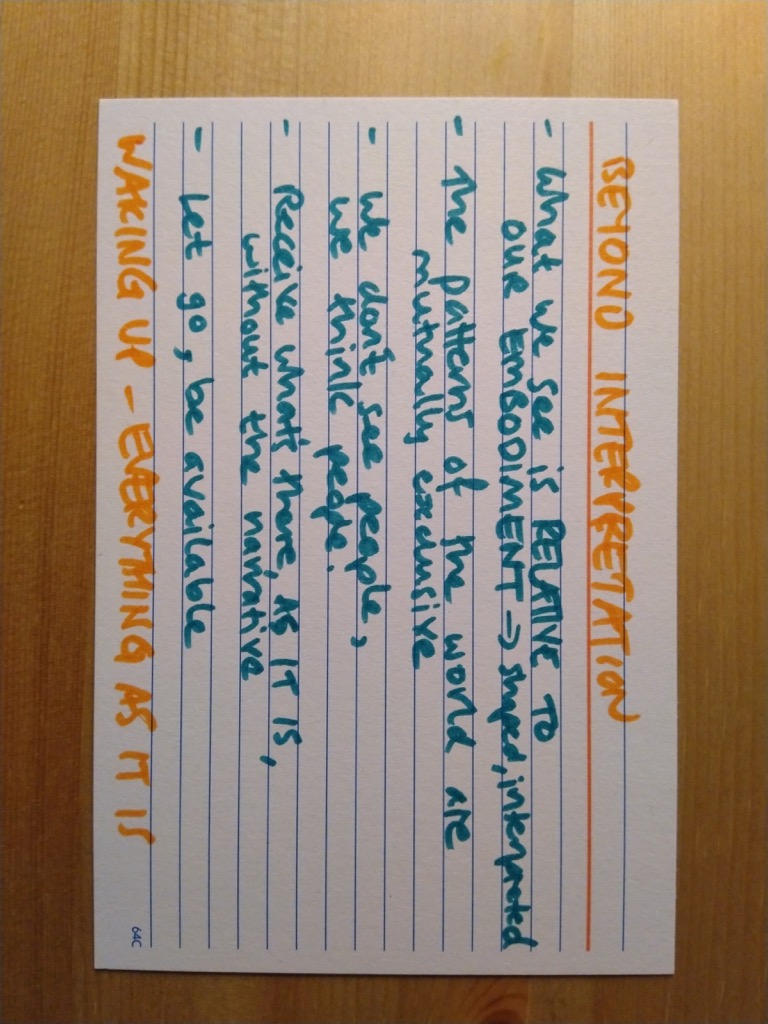 BEYOND INTERPRETATION
- What we see is RELATIVE TO
our EMBODIMENT → shaped, interpreted
- The patterns of the world are
mutually exclusive
- We don't see people,
we think people.
- Receive what's there, AS IT IS,
without the narrative
- Let go, be available
WAKING UP - EVERYTHING AS IT IS
64C